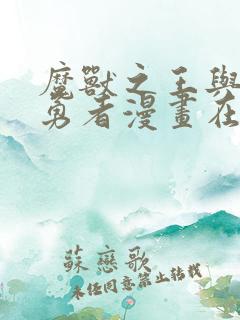 魔獸之王與
勇者漫畫在
蘇戀歌
未经同意禁止转载